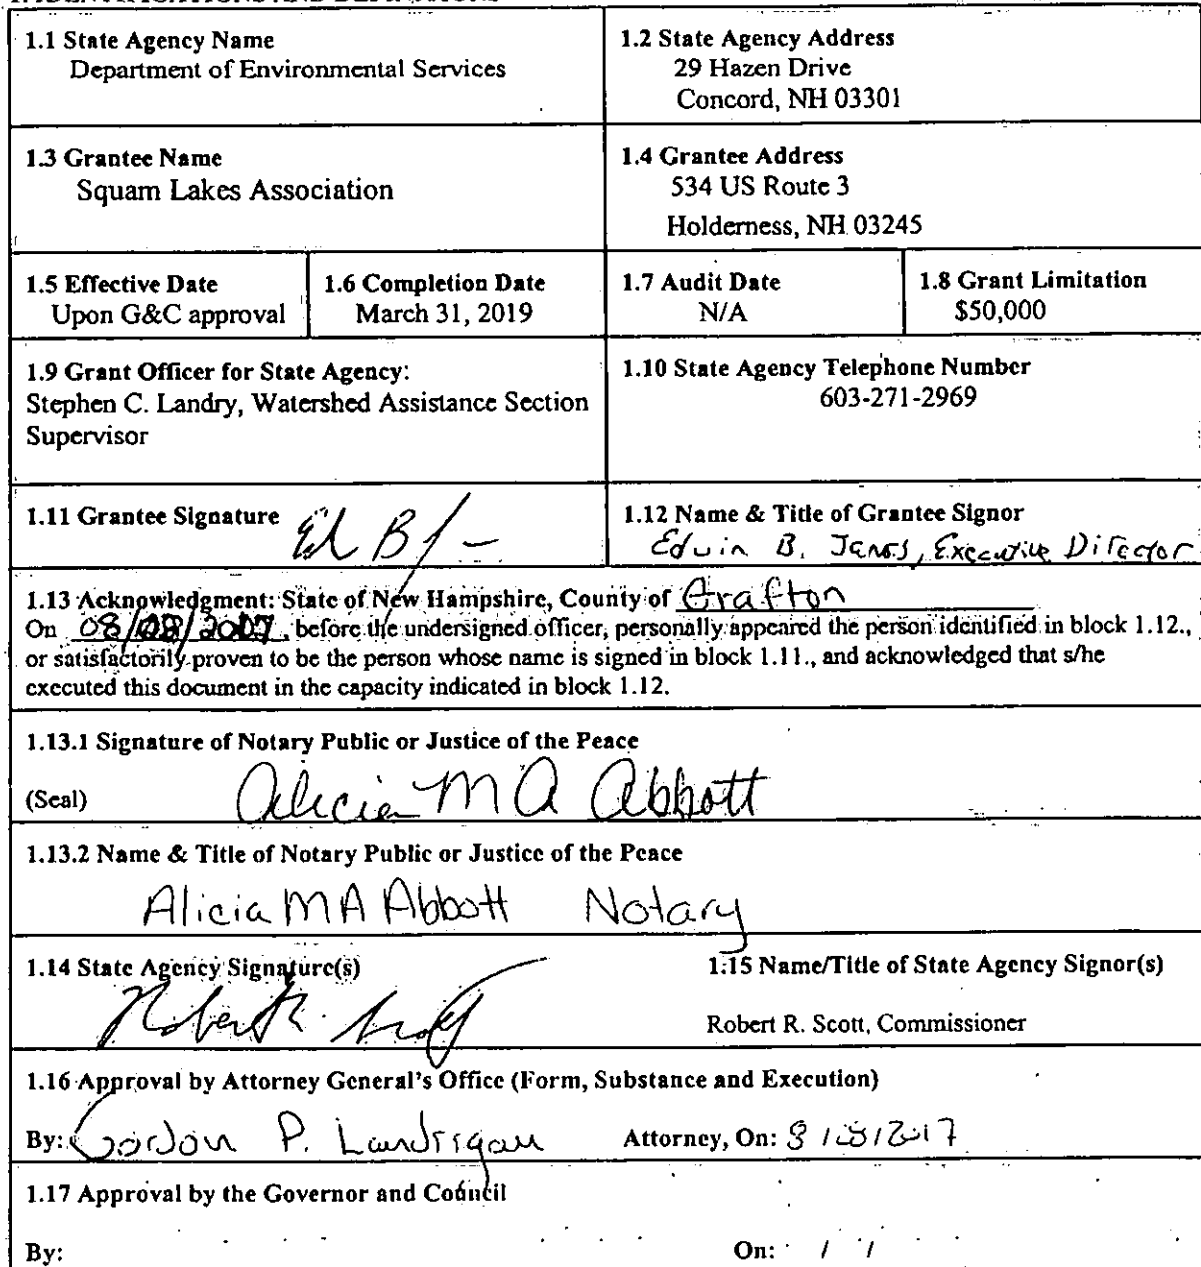 1.1 State Agency Name
Department of Environmental Services
1.2 State Agency Address
29 Hazen Drive
Concord, NH 03301
1.3 Grantee Name
Squam Lakes Association
1.4 Grantee Address
534 US Route 3
Holderness, NH 03245
1.5 Effective Date
Upon G&C approval
1.6 Completion Date
March 31, 2019
1.7 Audit Date
N/A
1.8 Grant Limitation
$50,000
1.9 Grant Officer for State Agency:
Stephen C. Landry, Watershed Assistance Section
Supervisor
1.10 State Agency Telephone Number
603-271-2969
1.11 Grantee Signature
1.12 Name & Title of Grantee Signor
Edwin B. , Executive Director
1.13 Acknowledgment: State of New Hampshire, County of Grafton
On , before the undersigned officer, personally appeared the person identified in block 1.12.,
or satisfactorily proven to be the person whose name is signed in block 1.11., and acknowledged that s/he
executed this document in the capacity indicated in block 1.12.
1.13.1 Signature of Notary Public or Justice of the Peace
(Seal) Alicia M A Abbott
1.13.2 Name & Title of Notary Public or Justice of the Peace
Alicia MA Abbott Notary
1.14 State Agency Signature(s)
1.15 Name/Title of State Agency Signor(s)
Robert R. Scott, Commissioner
1.16 Approval by Attorney General's Office (Form, Substance and Execution)
By: P. Attorney, On:
1.17 Approval by the Governor and Council
By: On: / /